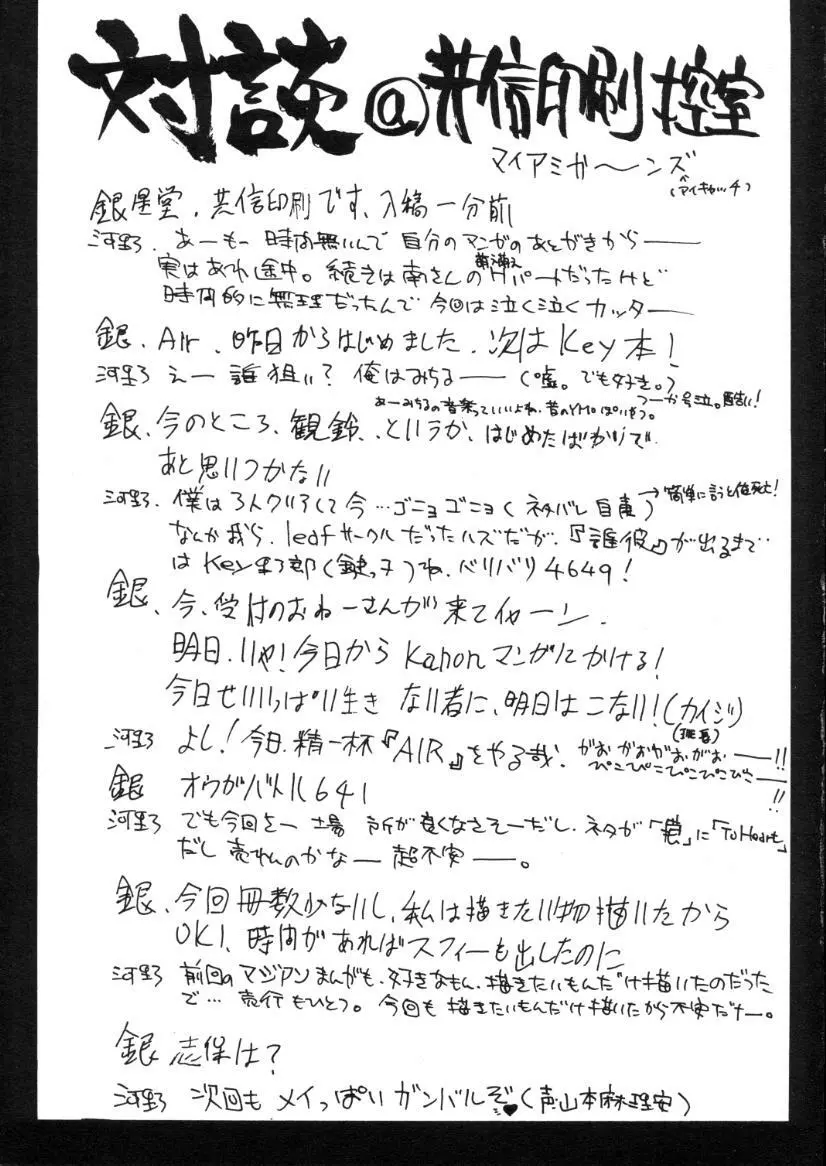 対談@共信印刷控室
マイアミガ〜ンズ
(アイキャッチ)
銀星堂、共信印刷です、入稿一分前
河野、あーもー時間無いんで自分のマンガのあとがきから——
実はあれ途中。続きは南さんのHパートだったけど
時間的に無理だったんで今回は泣く泣くカッター
銀、Air、昨日からはじめました、次はKey本!
河野 えー誰狙い?俺はみちる——(嘘。でも好き。)
つーか号泣。酷い!
あーみちるの音楽っていいよね、昔のYMOっぽい
銀、今のところ、観鈴、というか、はじめたばかりで
あと思いつかない
河野、僕は3人クリアして今…ゴニョゴニョ(ネタバレ自粛)
→簡単に言うと俺死亡!
なんか我ら、leafサークルだったハズだが、『誰彼』が出るまで
はKey野郎(鍵っ子)ね、バリバリ4649!
銀、今、受付のおねーさんが来てイヤーン、
明日、いや!今日からKanonマンガにかける!
今日せいいっぱい生きない者に、明日はこない!(カイジ)
(班長)
河野 よし!今日、精一杯『AIR』をやる哉、がおがおがおがお——!!
ぴこぴこぴこぴこぴこ——!!
銀 オウガバトル641
河野、でも今回さー場所が良くなさそーだし、ネタが「誰」に「ToHeart」
だし売れんのかなー超不安——。
銀、今回冊数少ないし、私は描きたい物描いたから
OK!、時間があればスフィーも出したのに
河野 前回のマジアンまんがも、好きなもん、描きたいもんだけ描いたのだった
で…売行もひとつ。今回も描きたいもんだけ描いたから不安だナー。
銀 志保は?
河野 次回もメイっぱいガンバルぞ♥(声山本麻里安)